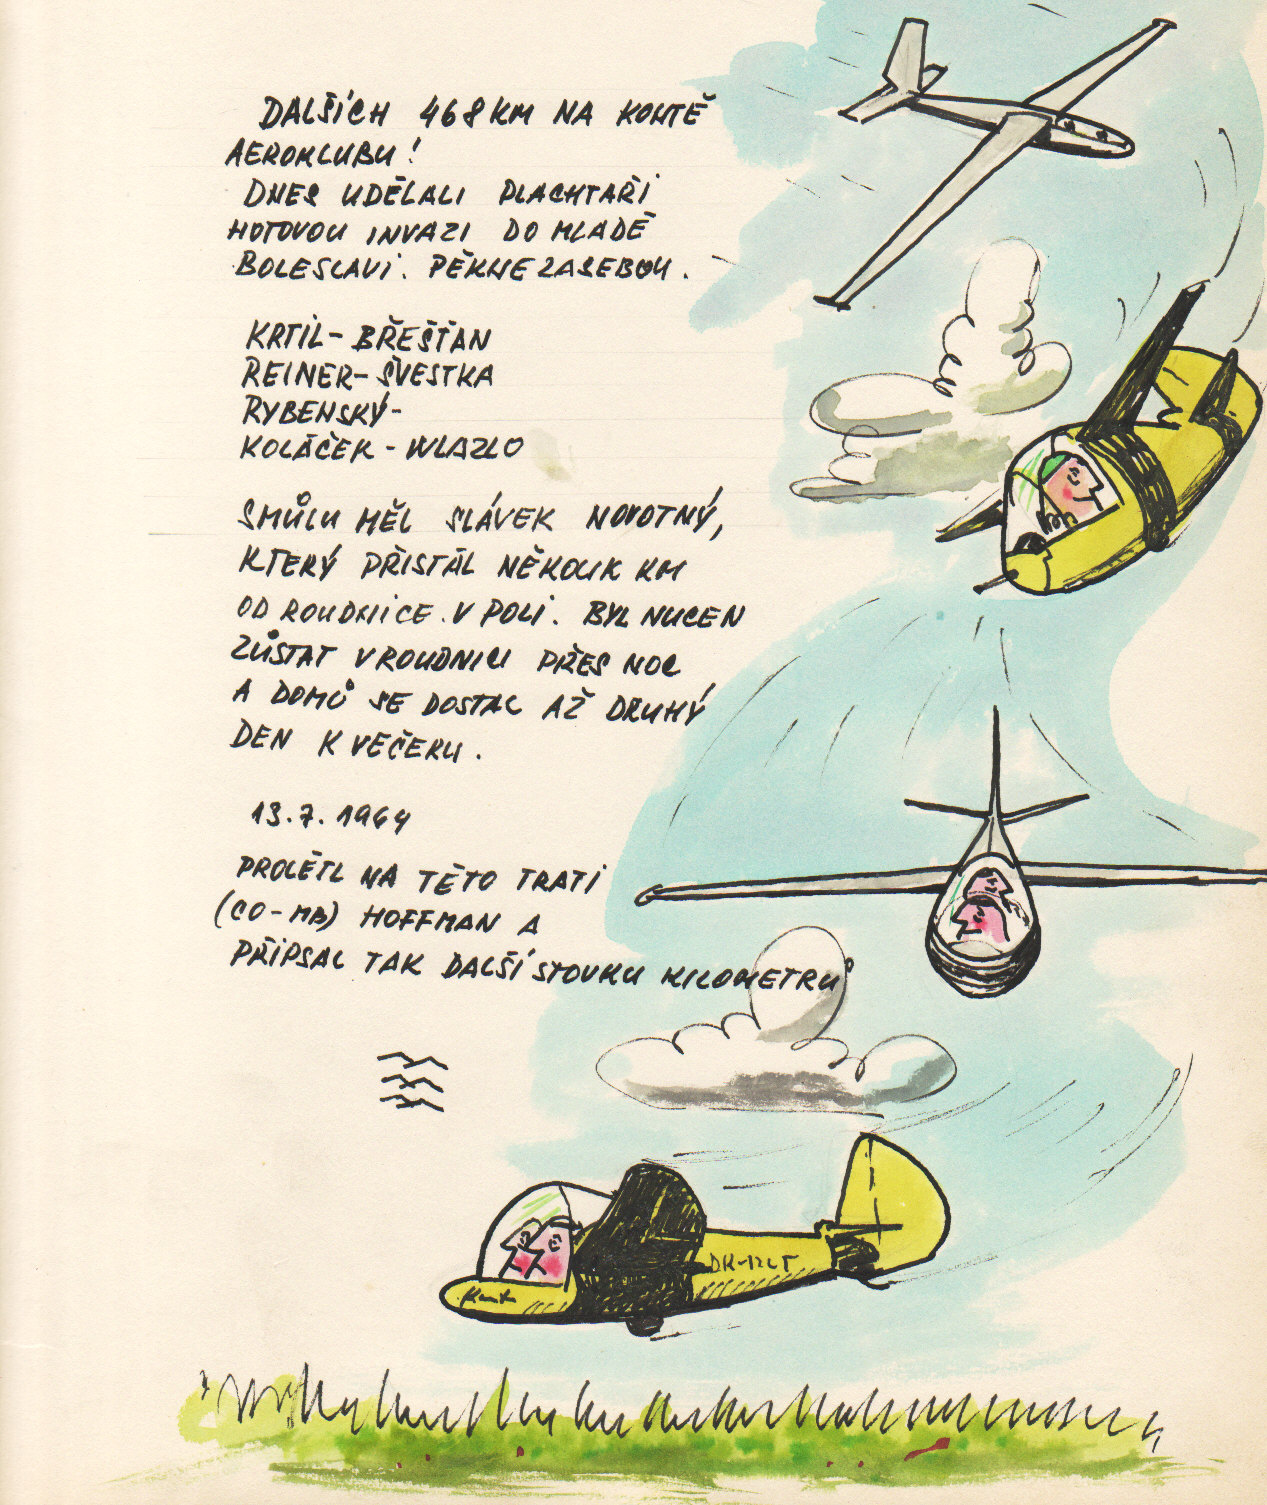 DALŠÍCH 468 KM NA KONTĚ
AEROKLUBU!
DNES UDĚLALI PLACHTAŘI
HOTOVOU INVAZI DO MLADÉ
BOLESLAVI. PĚKNE ZA SEBOU.
KRTIL - BŘEŠŤAN
REINER - ŠVESTKA
RYBENSKÝ -
KOLÁČEK - WLAZLO
SMŮLU MĚL SLÁVEK NOVOTNÝ,
KTERÝ PŘISTÁL NĚKOLIK KM
OD ROUDNICE. V POLI. BYL NUCEN
ZŮSTAT V ROUDNICI PŘES NOC
A DOMŮ SE DOSTAL AŽ DRUHÝ
DEN K VEČERU.
13.7.1964
PROLÉTL NA TÉTO TRATI
(CO-MB) HOFFMAN A
PŘIPSAL TAK DALŠÍ STOVKU KILOMETRŮ